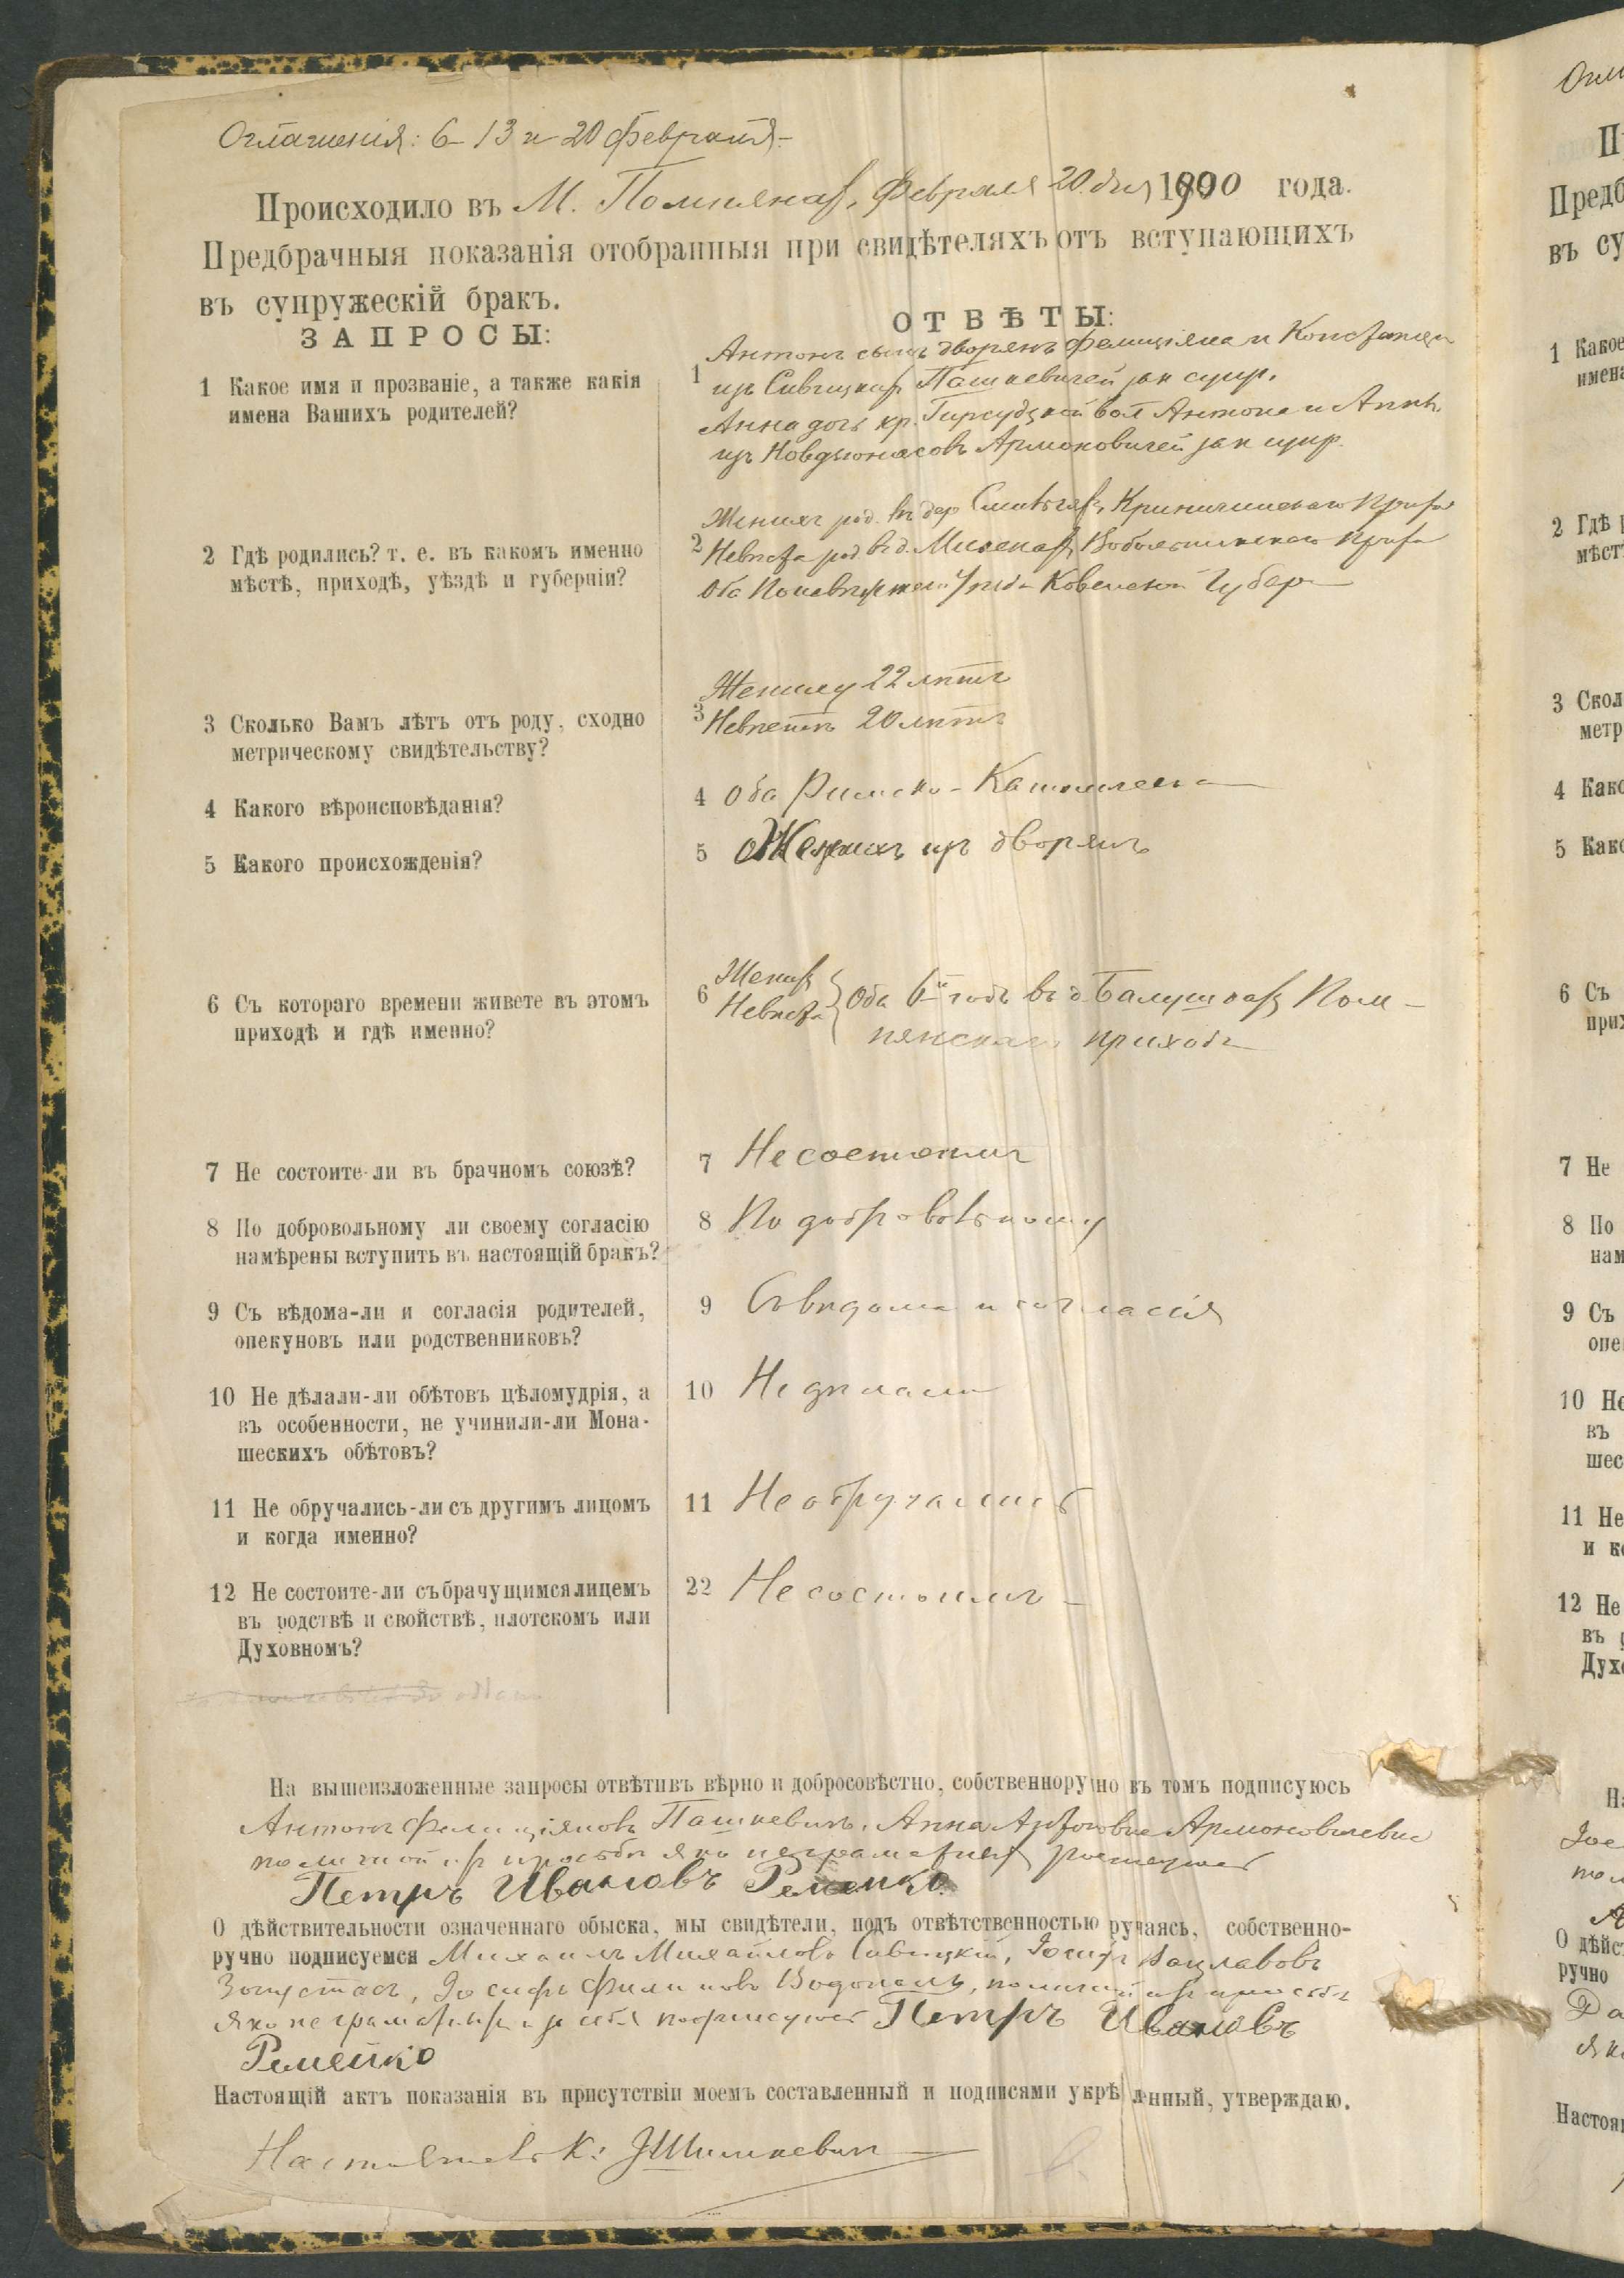 Оглашенія: 6- 13 и 20 Февраля.-
Происходило въ М. Помпянах, Февраля 20. дня 1900 года.
Предбрачныя показанія отобранныя при свидѣтеляхъ отъ вступающихъ
въ супружескій бракъ.
ЗАПРОСЫ:
ОТВѢТЫ:
1 Какое имя и прозваніе, а также какія
имена Вашихъ родителей?
Антонъ сынъ дворянъ Фелиціяна и Констанціи
1 изъ Савицких Пашкевичей зак супр.
Анна дочь кр. вол Антона и Анны
изъ Армоновичей зак супр.
2 Гдѣ родились? т. е. въ какомъ именно
мѣстѣ, приходѣ, уѣздѣ и губерніи?
Женихъ род. въ дер Криничинскаго прих
2 Невѣста род въ д. прих
Оба Поневѣжскаго Уѣзда Ковенской Губер
3 Сколько Вамъ лѣтъ отъ роду, сходно
метрическому свидѣтельству?
Жениху 22 лѣтъ
3 Невѣстѣ 20 лѣтъ
4 Какого вѣроисповѣданія?
4 Оба Римско-Католическа
5 Какого происхожденія?
5 Женихъ изъ дворянъ
6 Съ котораго времени живете въ этомъ
приходѣ и гдѣ именно?
6 Жених
Невѣста Оба годъ въ д. Пом-
пянскаго прихода
7 Не состоите-ли въ брачномъ союзѣ?
7 Не состоимъ
8 По добровольному ли своему согласію
намѣрены вступить въ настоящій бракъ?
8 По добровольному
9 Съ вѣдома-ли и согласія родителей,
опекуновъ или родственниковъ?
9 Съ вѣдома и согласія
10 Не дѣлали-ли обѣтовъ цѣломудрія, а
въ особенности, не учинили-ли Мона-
шескихъ обѣтовъ?
10 Не дѣлали
11 Не обручались-ли съ другимъ лицомъ
и когда именно?
11 Не обручались
12 Не состоите-ли съ брачущимся лицемъ
въ родствѣ и свойствѣ, плотскомъ или
Духовномъ?
22 Не состоимъ
На вышеизложенные запросы отвѣтивъ вѣрно и добросовѣстно, собственноручно въ томъ подписуюсь
Антонъ Фелиціяновъ Пашкевичъ, Анна Антоновна Армоновичевна
по личной их просьбѣ яко неграмотных росписуюсь
Петръ Ивановъ Ремейко.
О дѣйствительности означеннаго обыска, мы свидѣтели, подъ отвѣтственностью ручаясь, собственно-
ручно подписуемся Михаилъ Михайловъ Савицкій, Іосифъ Вацлавовъ
Іосифъ по личной их просьбѣ
яко неграмотных и за себя подписуюсь Петръ Ивановъ
Ремейко
Настоящій актъ показанія въ присутствіи моемъ составленный и подписями укрѣпленный, утверждаю.
Настоятель К: